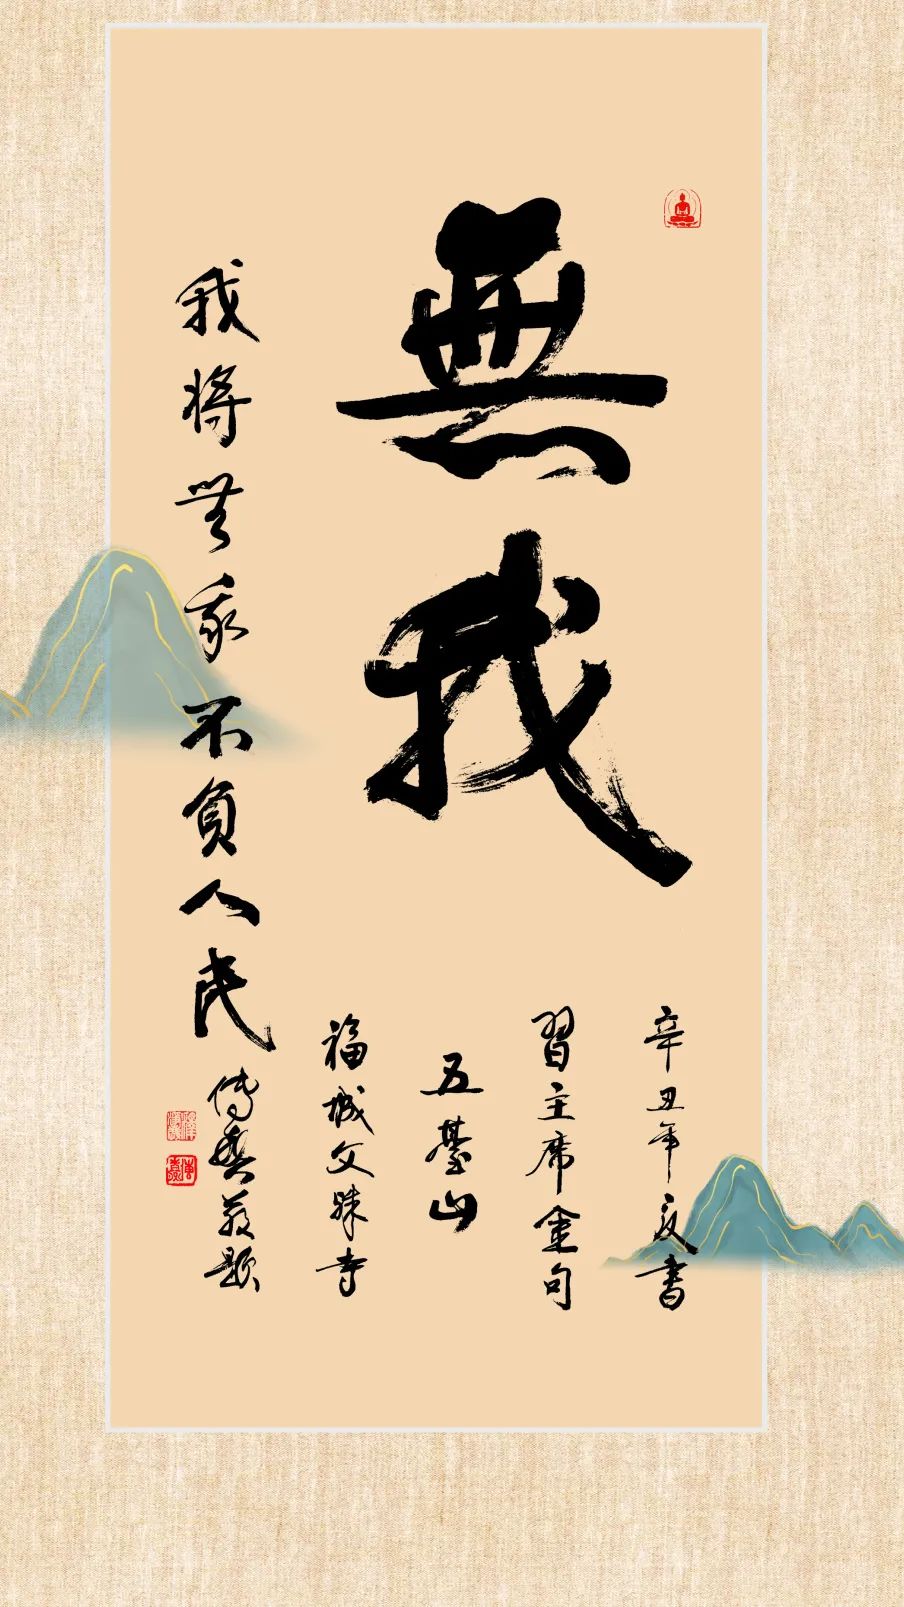 無我
我将無我不負人民
辛丑年夏書
習主席金句
五臺山
福城文殊寺
傳
題